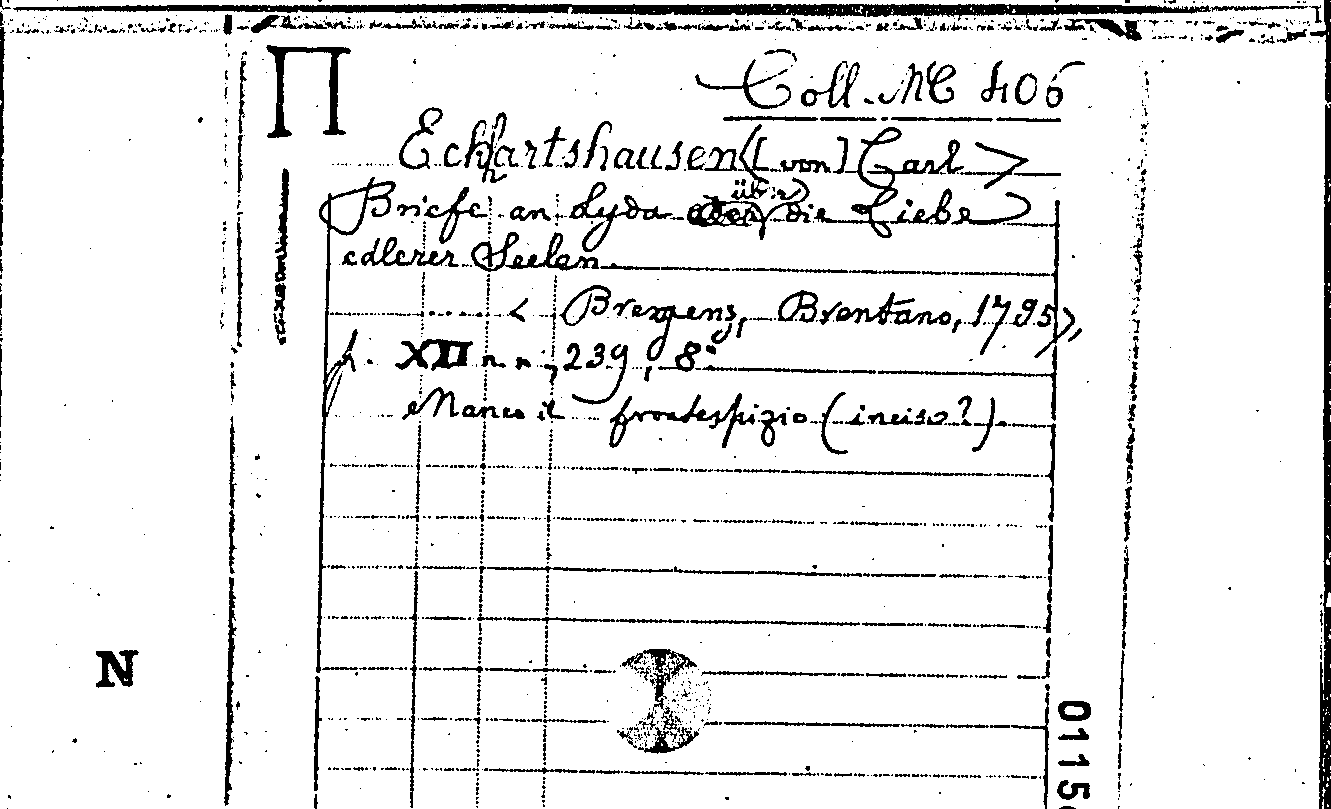 Π
Coll. MC 406
Eckhartshausen <[von] Carl>
Briefe an Lyda über die Liebe
edlerer Seelen.
..... < Bregenz, Brentano, 1795>,
p. XII n n, 239, 8°
Manca il frontespizio (inciso?).
N
0115